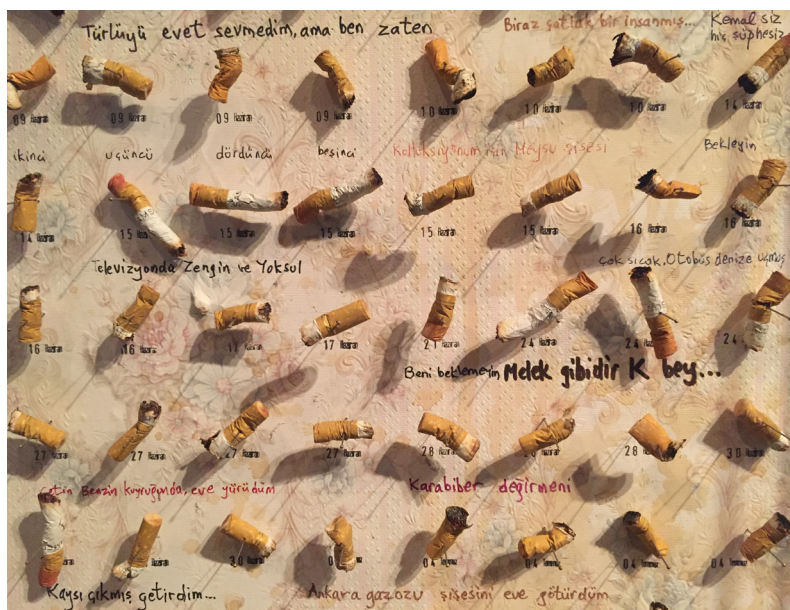 Türlüyü evet sevmedim, ama ben zaten
Biraz çatlak bir insanmış...
Kemal siz
hiç şüphesiz
09 Haziran 09 Haziran 09 Haziran 09 Haziran 10 Haziran 10 Haziran 10 Haziran 14 Haziran
ikinci üçüncü dördüncü beşinci Kolleksiyonum için Meysu şişesi Bekleyin
14 Haziran 15 Haziran 15 Haziran 15 Haziran 15 Haziran 15 Haziran 16 Haziran 16 Haziran
Televizyonda Zengin ve Yoksul
Çok sıcak, Otobüs denize uçmuş
16 Haziran 16 Haziran 17 Haziran 17 Haziran 21 Haziran 24 Haziran 24 Haziran 24
Beni beklemeyin Melek gibidir K bey...
27 Haziran 27 Haziran 27 Haziran 27 Haziran 28 Haziran Haziran 28 Haziran 30 Haziran
Çetin Benzin kuyruğunda, eve yürüdüm
Karabiber değirmeni
30 Haziran 04 Temmuz 04 Temmuz 04 Temmuz 04 Temmuz
Kaysı çıkmış getirdim...
Ankara gazozu şişesini eve götürdüm